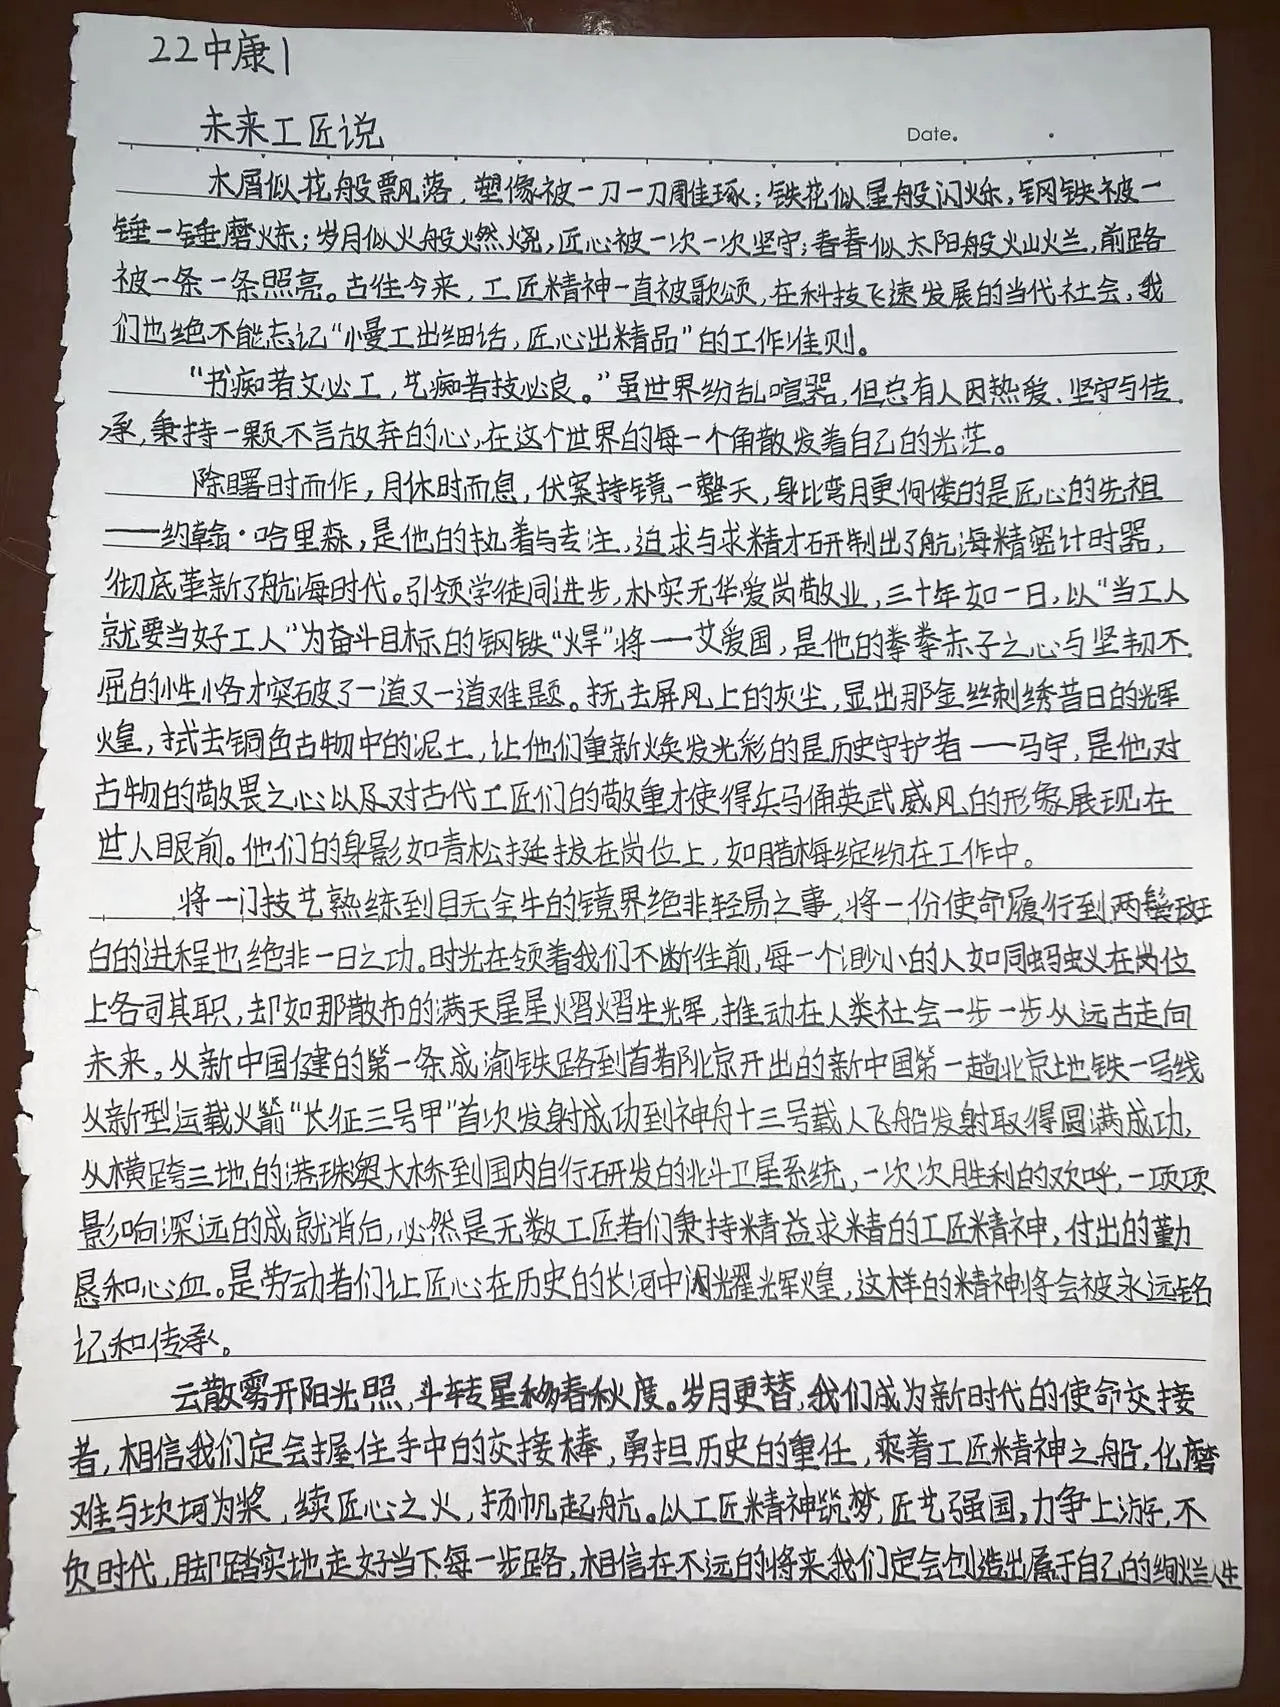 22中康1
未来工匠说
Date.
木屑似花般飘落，塑像被一刀一刀雕琢；铁花似星般闪烁，钢铁被一
锤一锤磨炼；岁月似火般燃烧，匠心被一次一次坚守；青春似太阳般火山火兰，前路
被一条一条照亮。古往今来，工匠精神一直被歌颂，在科技飞速发展的当代社会，我
们也绝不能忘记“慢工出细活，匠心出精品”的工作准则。
“书痴者文必工，艺痴者技必良。”虽世界纷乱喧嚣，但总有人因热爱、坚守与传
承，秉持一颗不言放弃的心，在这个世界的每一个角散发着自己的光茫。
除曙时而作，月休时而息，伏案持镜一整天，身比弯月更佝偻的是匠心的先祖
——约翰·哈里森，是他的执着与专注，追求与求精才研制出了航海精密计时器，
彻底革新了航海时代。引领学徒同进步，朴实无华爱岗敬业，三十年如一日，以“当工人
就要当好工人”为奋斗目标的钢铁“焊”将——艾爱国，是他的拳拳赤子之心与坚韧不
屈的性格才突破了一道又一道难题。抚去屏风上的灰尘，显出那金丝刺绣昔日的辉
煌，拭去铜色古物中的泥土，让他们重新焕发光彩的是历史守护者——马宇，是他对
古物的敬畏之心以及对古代工匠们的敬重才使得兵马俑英武威风的形象展现在
世人眼前。他们的身影如青松挺拔在岗位上，如腊梅绽纷在工作中。
将一门技艺熟练到目无全牛的镜界绝非轻易之事，将一份使命履行到两鬓斑
白的进程也绝非一日之功。时光在领着我们不断往前，每一个渺小的人如同蚂蚁在岗位
上各司其职，却如那散布的满天星星熠熠生辉，推动在人类社会一步一步从远古走向
未来。从新中国健的第一条成渝铁路到首都北京开出的新中国第一趟北京地铁一号线
从新型运载火箭“长征三号甲”首次发射成功到神舟十三号载人飞船发射取得圆满成功，
从横跨三地的港珠澳大桥到国内自行研发的北斗卫星系统，一次次胜利的欢呼，一项项
影响深远的成就背后，必然是无数工匠者们秉持精益求精的工匠精神，付出的勤
恳和心血。是劳动者们让匠心在历史的长河中闪耀辉煌，这样的精神将会被永远铭
记和传承。
云散雾开阳光照，斗转星移春秋度。岁月更替，我们成为新时代的使命交接
者，相信我们定会握住手中的交接棒，勇担历史的重任，乘着工匠精神之船，化磨
难与坎坷为桨，续匠心之火，扬帆起航。以工匠精神筑梦，匠艺强国，力争上游，不
负时代，脚踏实地走好当下每一步路，相信在不远的将来我们定会创造出属于自己的绚烂人生